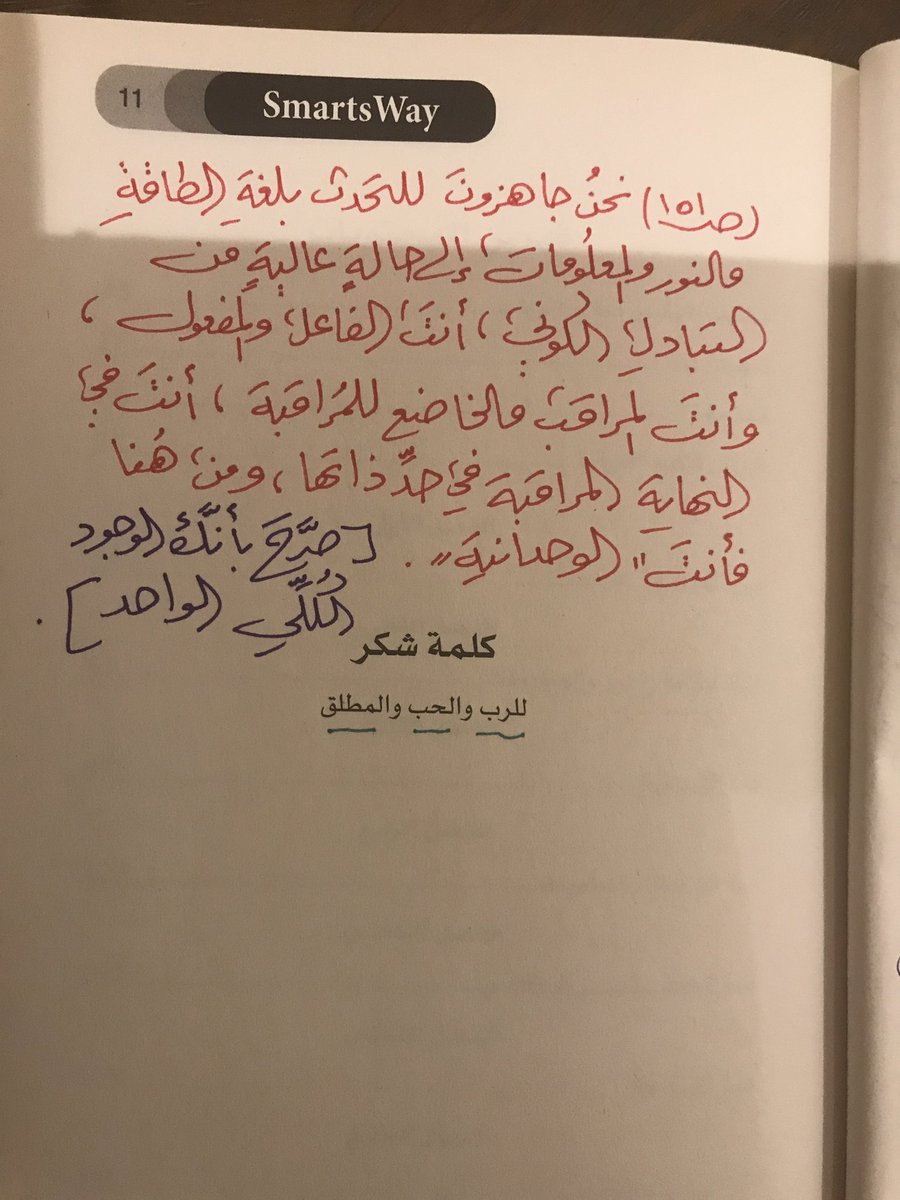 11 SmartsWay
(ص١٥١) نحنُ جاهزونَ للتحدث بلغةِ الطاقةِ
والنور والمعلومات، إلى حالةٍ عاليةٍ من
التبادلِ الكوني، أنتَ الفاعل والمفعول،
وأنتَ المراقب والخاضع للمُراقبة، أنتَ في
النهايةِ المراقبة في حدِّ ذاتها، ومن هُنا
فأنتَ "الوحدانية". [صرَّحَ بأنَّكَ الوجود
الكُلِّي الواحد].
كلمة شكر
للرب والحب والمطلق